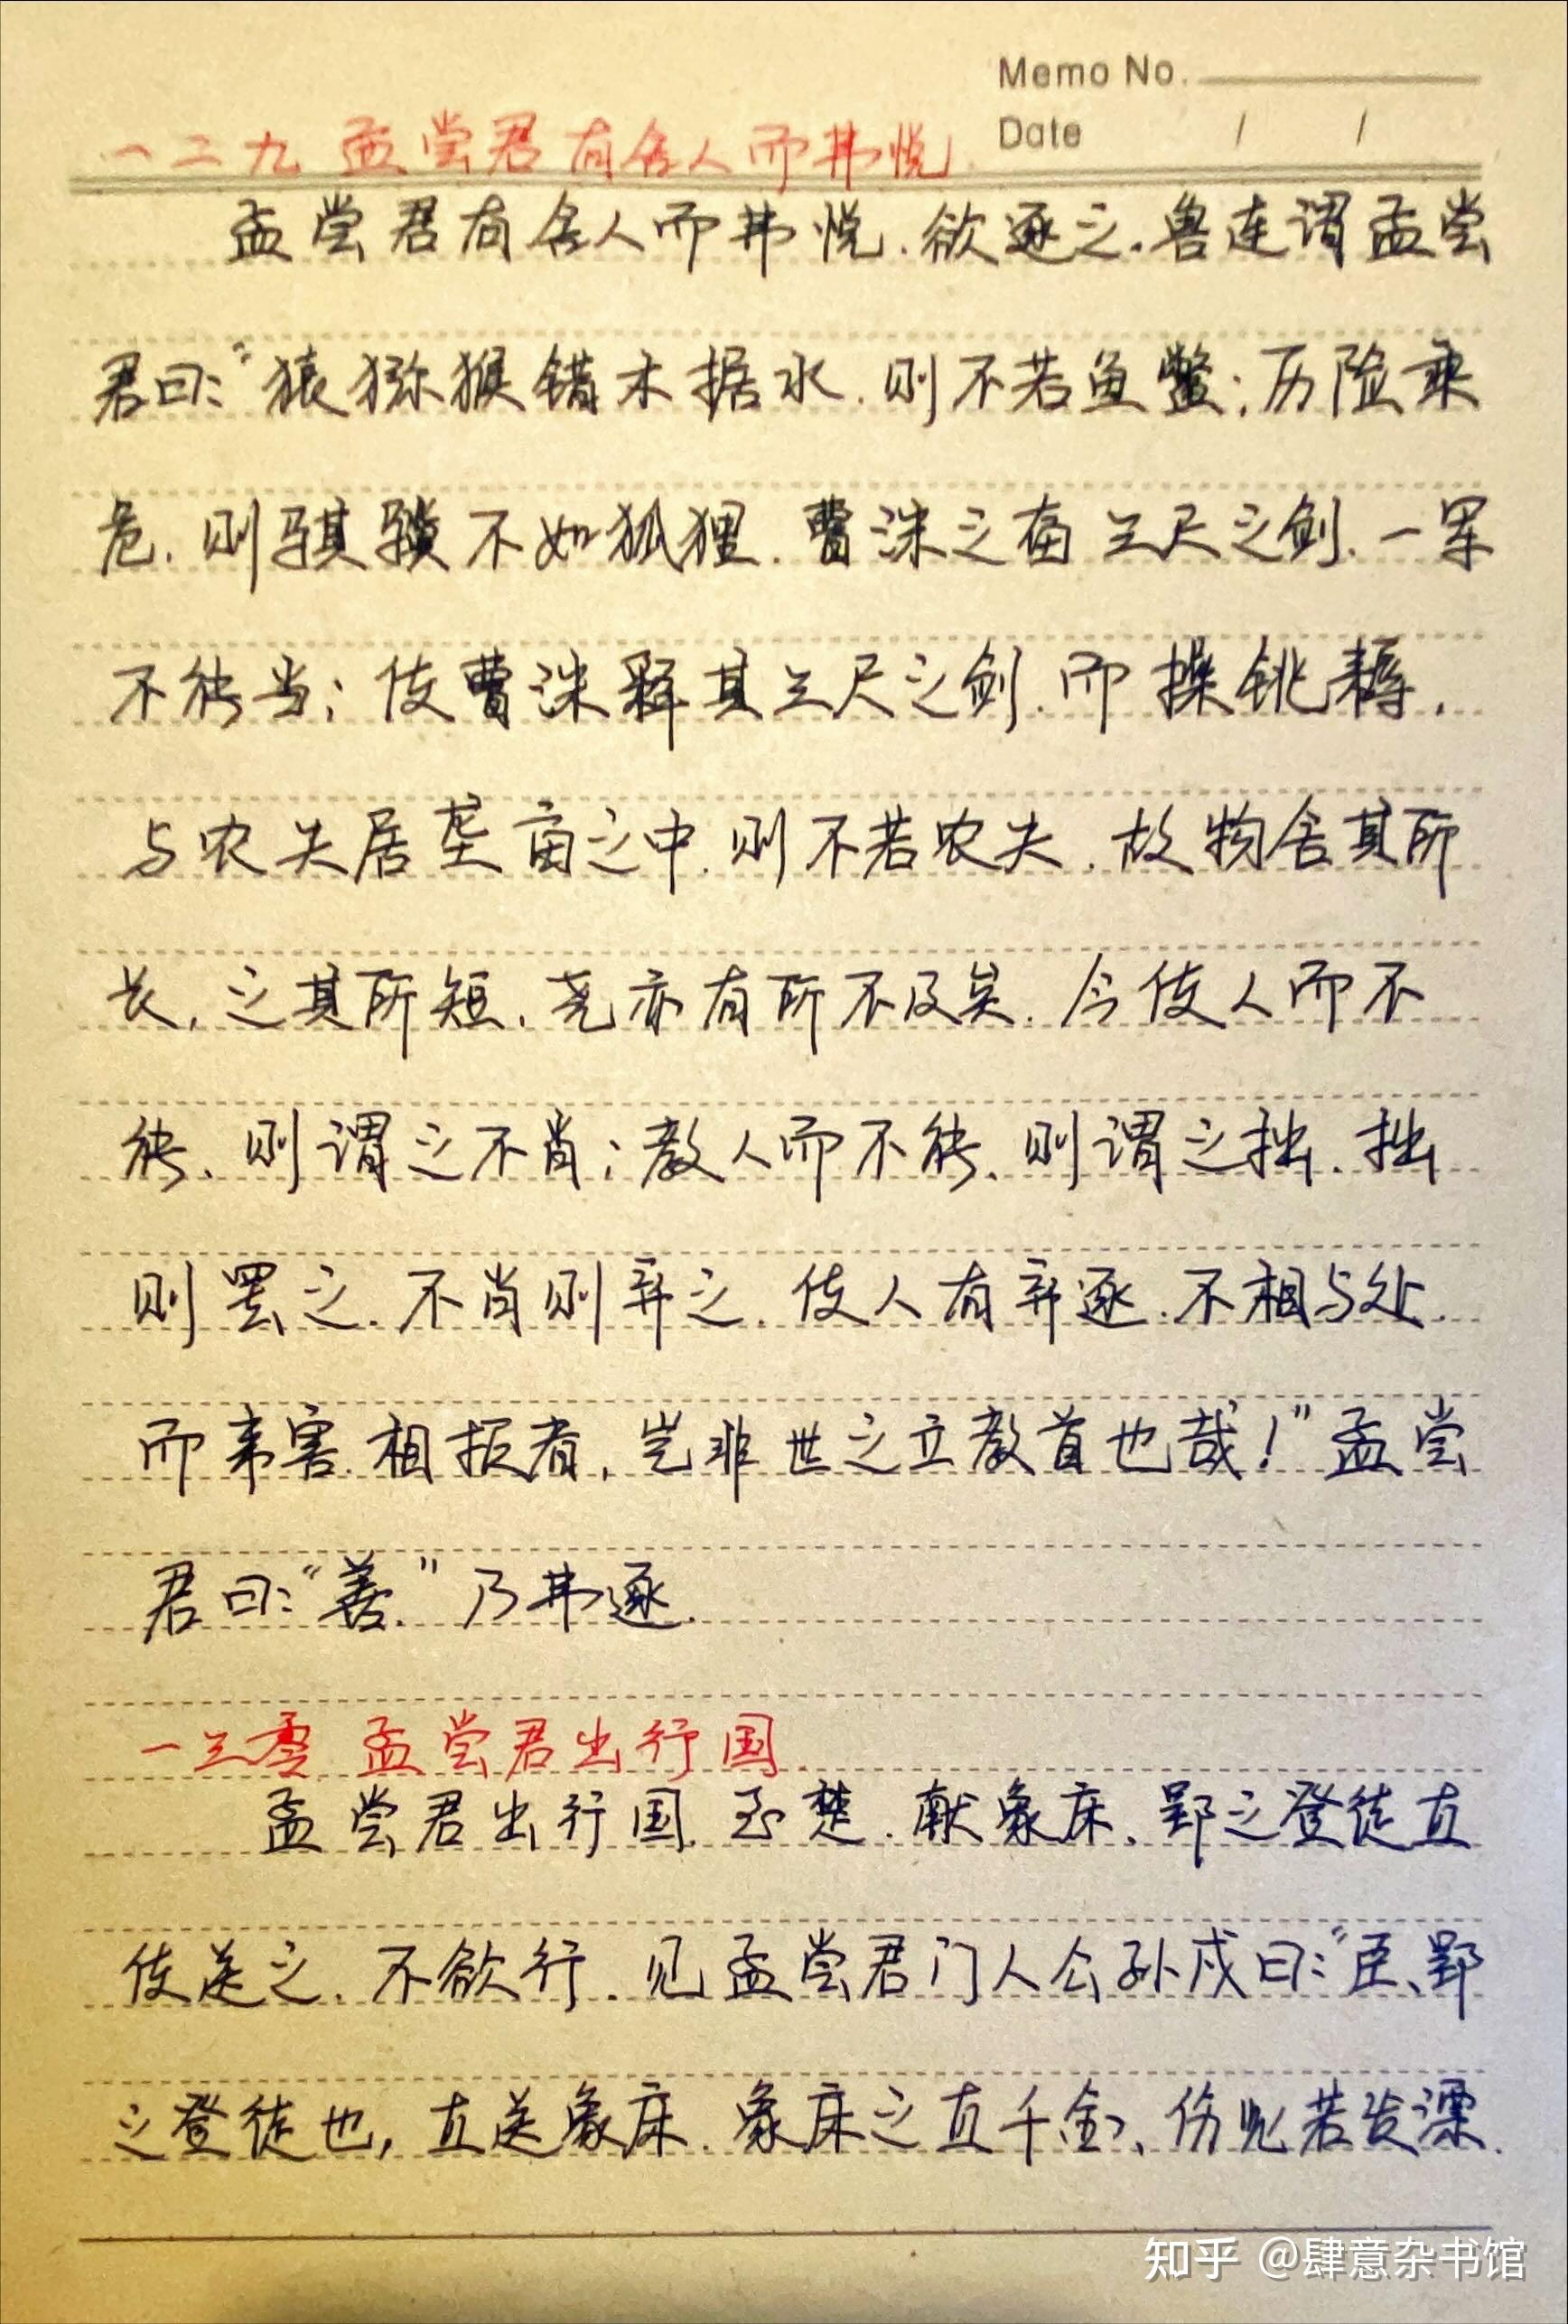 Memo No.
Date / /
一二九 孟尝君有舍人而弗悦.
孟尝君有舍人而弗悦.欲逐之.鲁连谓孟尝
君曰:“猿猕猴错木据水.则不若鱼鳖;历险乘
危.则骐骥不如狐狸.曹沫之奋三尺之剑.一军
不能当;使曹沫释其三尺之剑.而操铫耨.
与农夫居垄亩之中.则不若农夫.故物舍其所
长,之其所短.尧亦有所不及矣.今使人而不
能.则谓之不肖;教人而不能.则谓之拙.拙
则罢之.不肖则弃之.使人有弃逐.不相与处.
而来害相报者,岂非世之立教首也哉!”孟尝
君曰:“善.”乃弗逐.
一三零.孟尝君出行国.
孟尝君出行国.至楚.献象床.郢之登徒直
使送之.不欲行.见孟尝君门人公孙戍曰:“臣、郢
之登徒也,直送象床.象床之直千金、伤此若发漂.
知乎 @肆意杂书馆